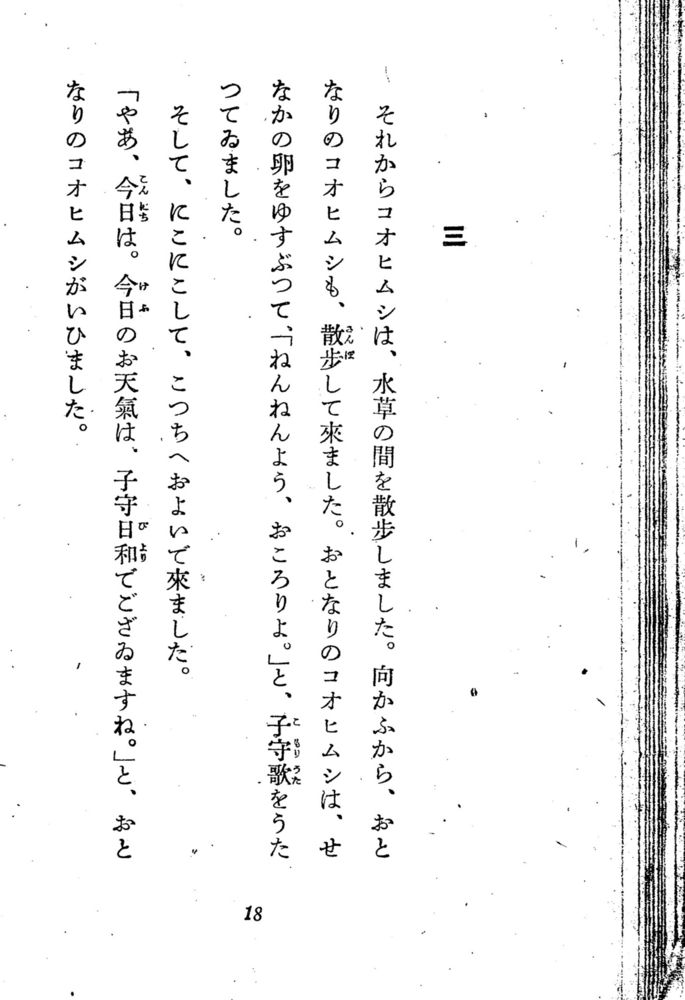 三
それからコオヒムシは、水草の間を散歩しました。向かふから、おと
なりのコオヒムシも、散歩して來ました。おとなりのコオヒムシは、せ
なかの卵をゆすぶつて、「ねんねんよう、おころりよ。」と、子守歌をうた
つてゐました。
そして、にこにこして、こつちへおよいで來ました。
「やあ、今日は。今日のお天氣は、子守日和でござゐますね。」と、おと
なりのコオヒムシがいひました。
18